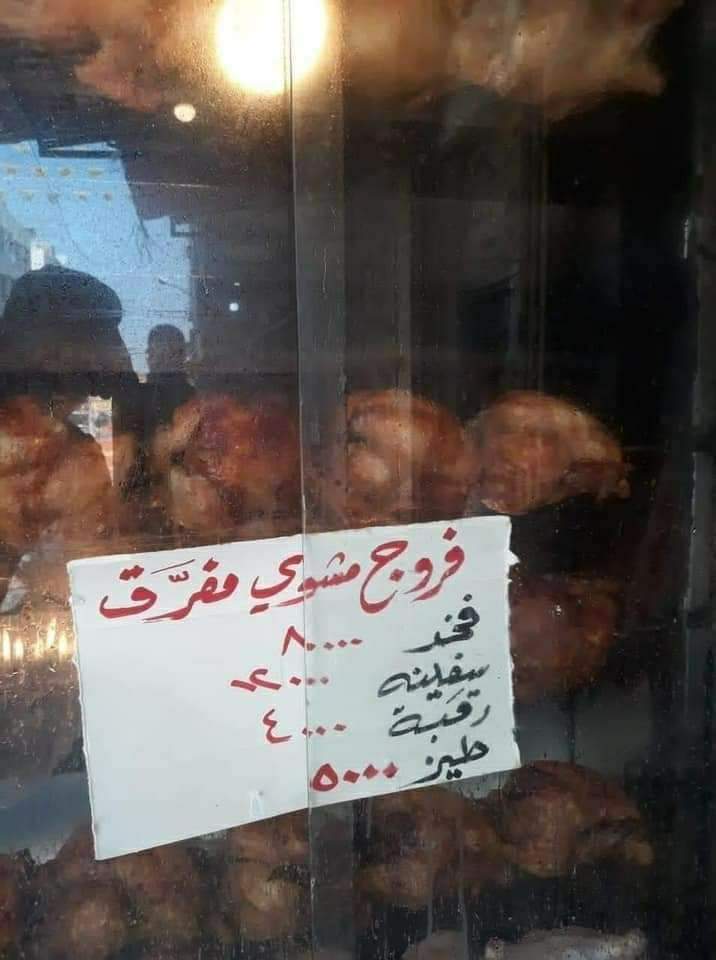 فروج مشوي مفرَّق
فخد ٨٠٠٠
سفينه ١٢٠٠٠
رقبة ٤٠٠٠
طيز ٥٠٠٠